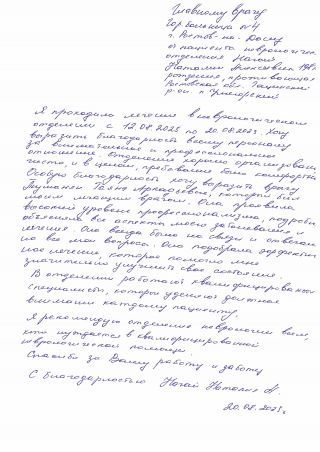 Главному врачу
Гор больницы №4
г. Ростов-на-Дону
от пациента неврологичес.
отделения
Наталии Алексеевны
рождения, проживающая
Ростовская обл.
р-он. п.
Я проходила лечение в неврологическом
отделении с 12.08.2025 по 20.08.2025. Хочу
выразить благодарность всему персоналу
за внимательное и профессиональное
отношение. Отделение хорошо организовано,
чисто, и в целом, пребывание было комфортным.
Особую благодарность хочу выразить врачу
Галине Аркадьевне, которая был
моим лечащим врачом. Она проявила
высокий уровень профессионализма, подробно
объяснила все аспекты моего заболевания и
лечения. Она всегда была на связи и отвечала
на все мои вопросы. Она подобрала эффектив
ное лечение, которое помогло мне
значительно улучшить свое состояние.
В отделении работают квалифицированные
специалисты, которые уделяют должное
внимание каждому пациенту.
Я рекомендую отделение неврологии всем,
кто нуждается в квалифицированной
неврологической помощи.
Спасибо за Вашу работу и заботу
С благодарностью Наталия А.
20.08.2025г